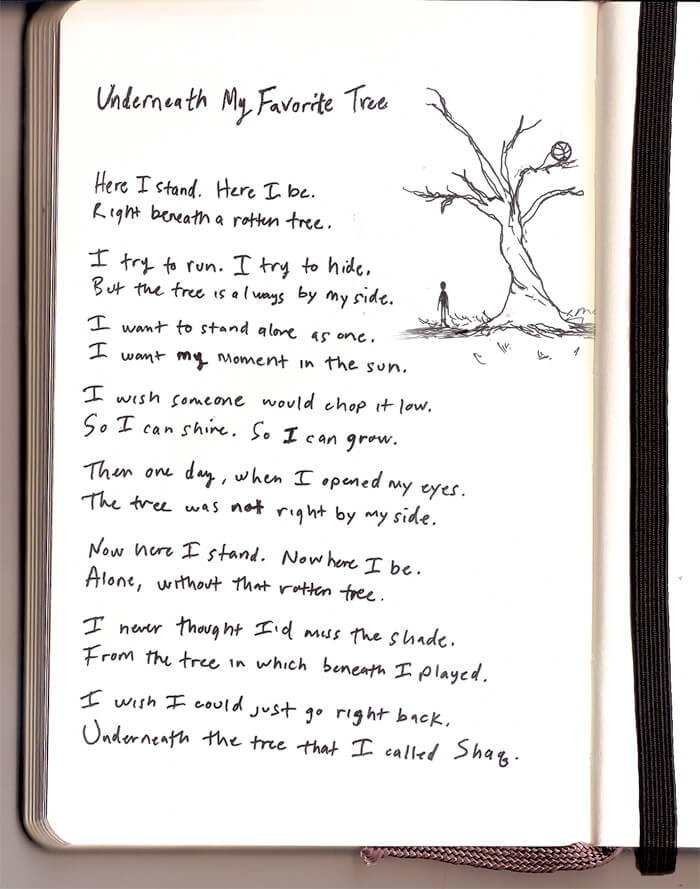 Underneath My Favorite Tree
Here I stand. Here I be.
Right beneath a rotten tree.
I try to run. I try to hide.
But the tree is always by my side.
I want to stand alone as one.
I want my moment in the sun.
I wish someone would chop it low.
So I can shine. So I can grow.
Then one day, when I opened my eyes.
The tree was not right by my side.
Now here I stand. Now here I be.
Alone, without that rotten tree.
I never thought I'd miss the shade.
From the tree in which beneath I played.
I wish I could just go right back.
Underneath the tree that I called Shaq.